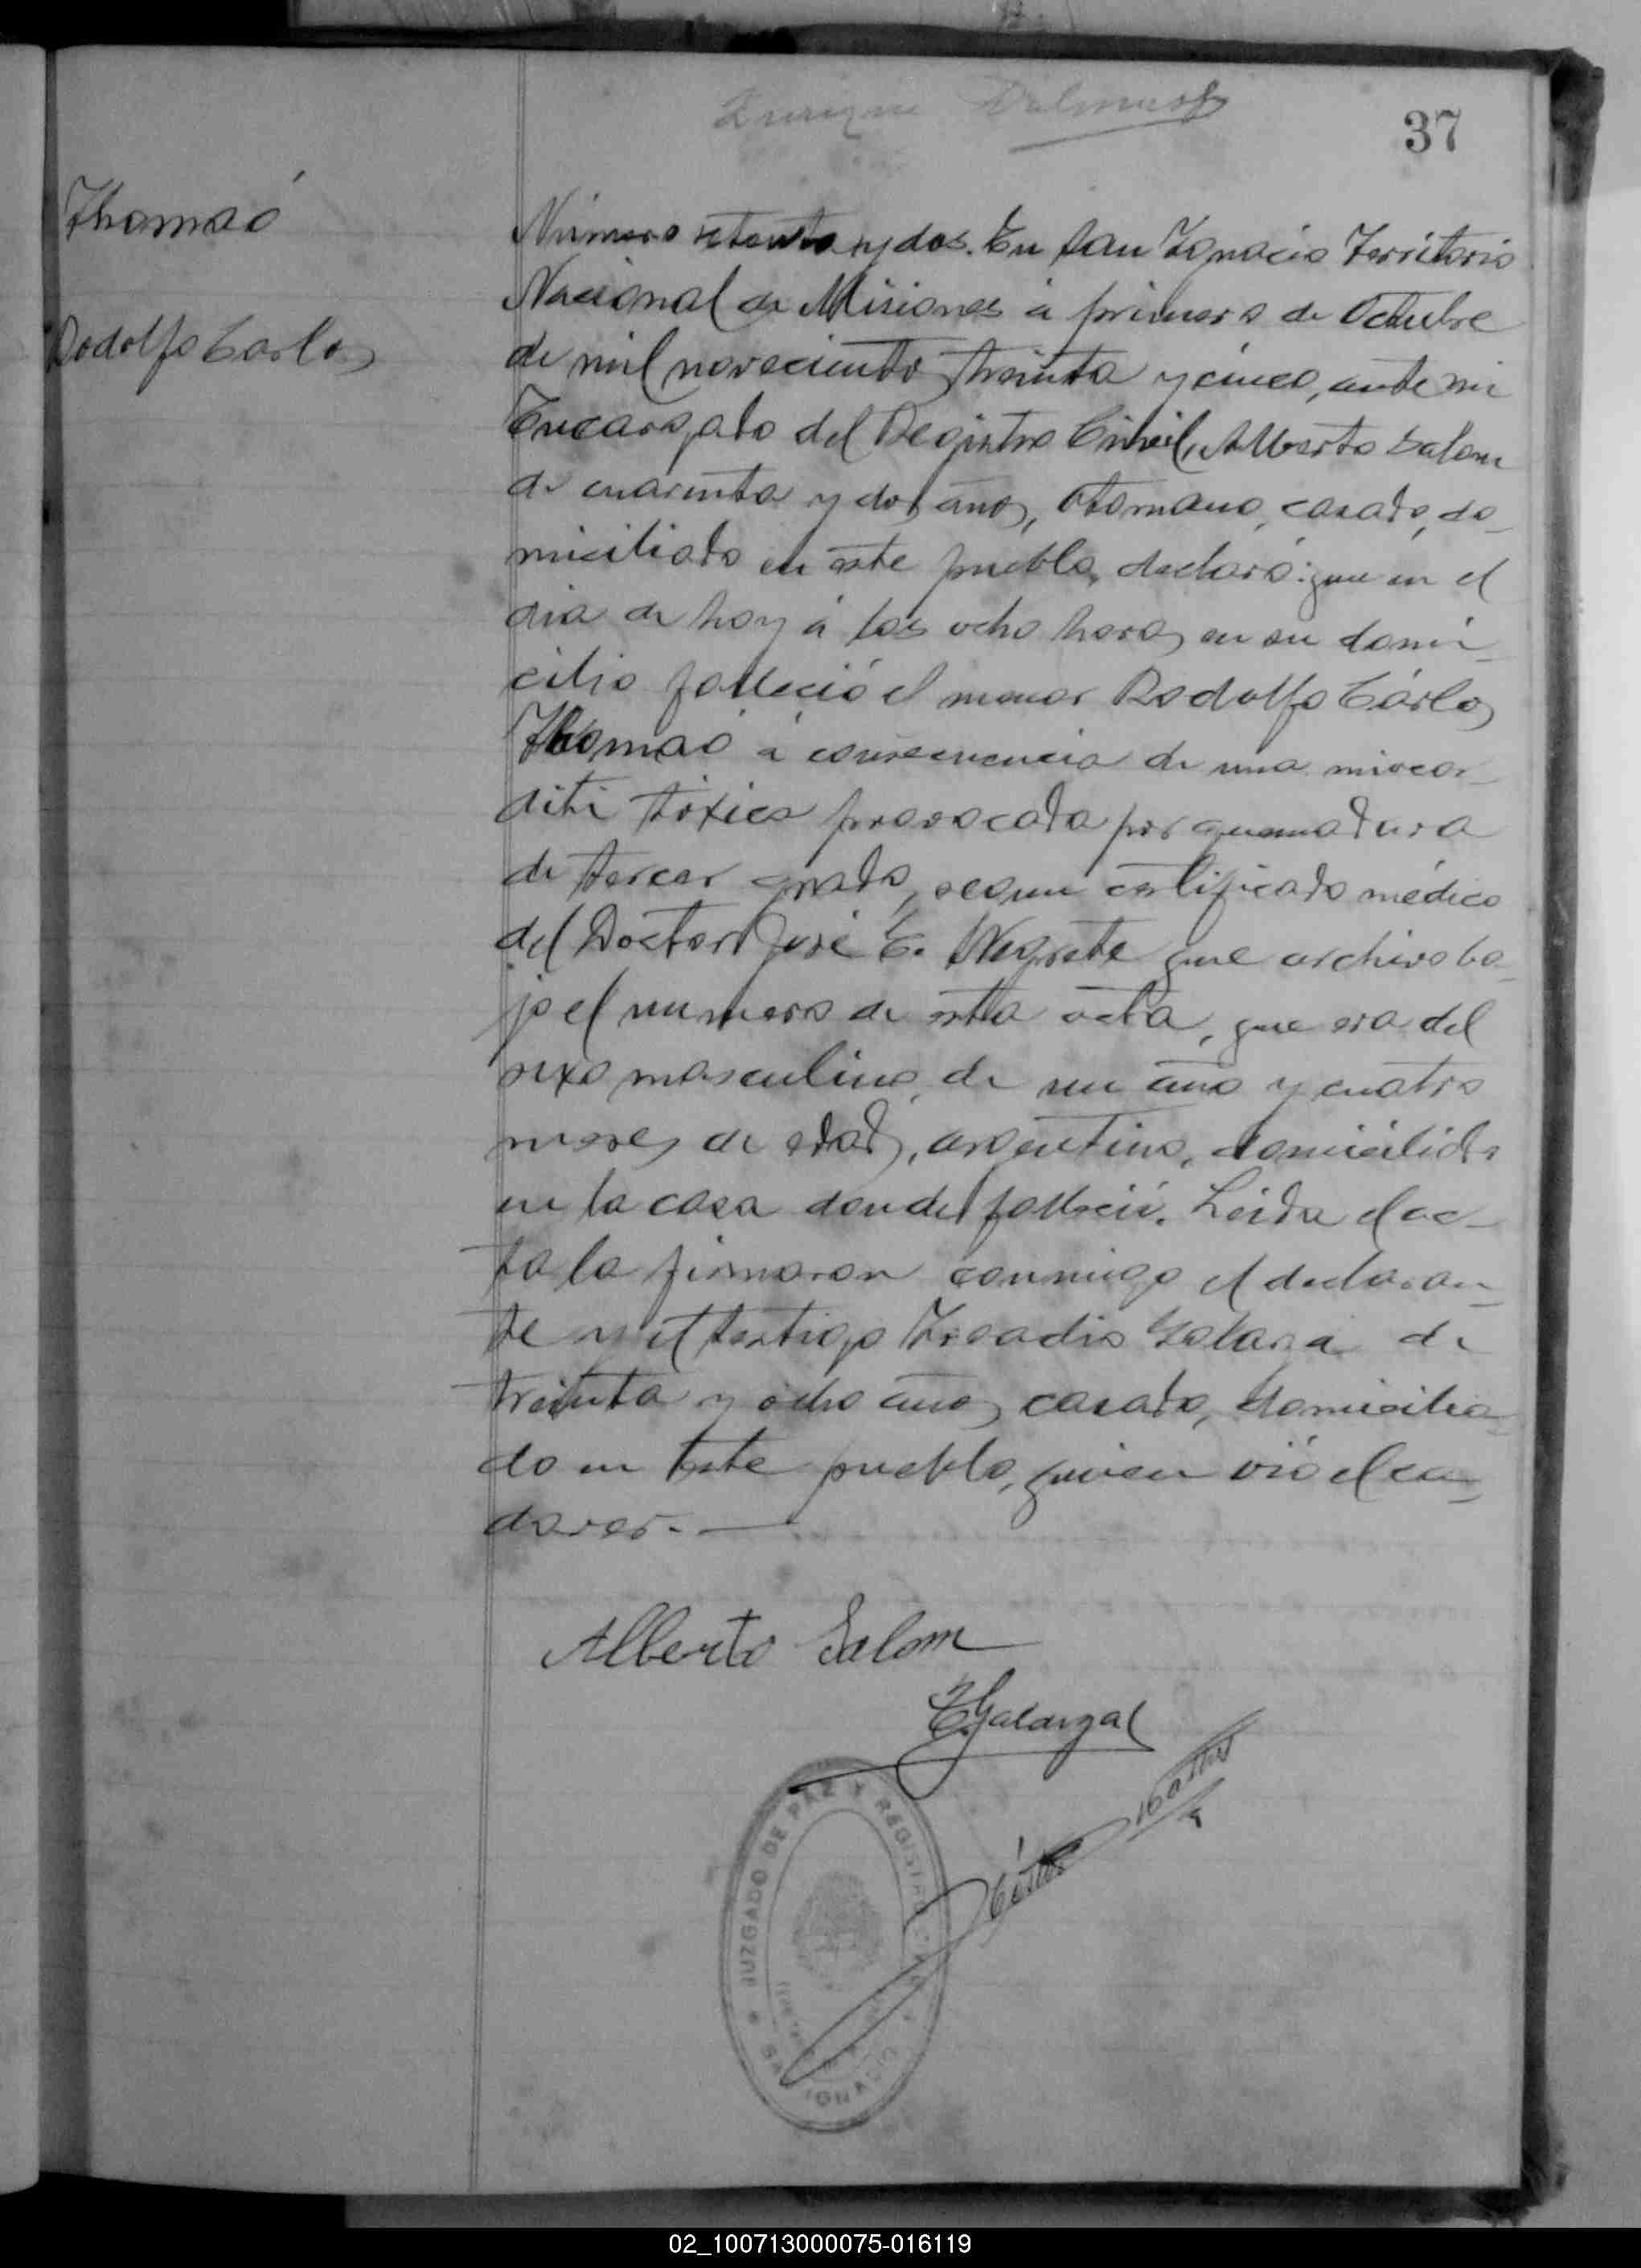 Enrique
37
Thomaó
Rodolfo Carlos
Número setenta y dos. En San Ignacio Territorio
Nacional de Misiones á primero de Octubre
de mil novecientos treinta y cinco, ante mi
Encargado del Registro Civil, Alberto Salom
de cuarenta y dos años, otomano, casado, do-
miciliado en este pueblo, declaró: que en el
dia de hoy á las ocho horas en su domi-
cilio falleció el menor Rodolfo Cárlos
Thomaó á consecuencia de una miocar-
diti tóxica provocada por quemadura
de tercer grado, segun certificado médico
del Doctor José C. Negrete que archivo ba-
jo el numero de esta acta, que era del
sexo masculino, de un año y cuatro
meses de edad, argentino, domiciliado
en la casa donde falleció. Leida el ac-
ta la firmaron conmigo el declaran-
te y el testigo de
treinta y ocho años, casado, domicilia-
do en este pueblo, quien vió el ca-
daver.-
Alberto Salom
JUZGADO DE PAZ Y REGISTRO CIVIL
SAN IGNACIO
02_100713000075-016119